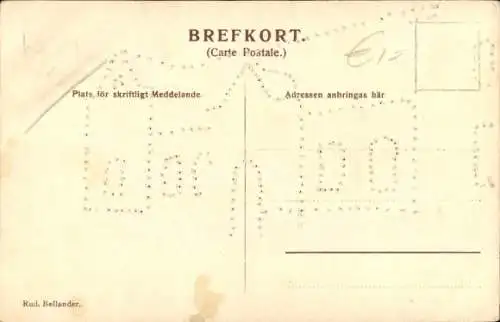 BREFKORT.
(Carte Postale.)
€1=
Plats för skriftligt Meddelande.
Adressen anbringas här
Rud. Bellander.